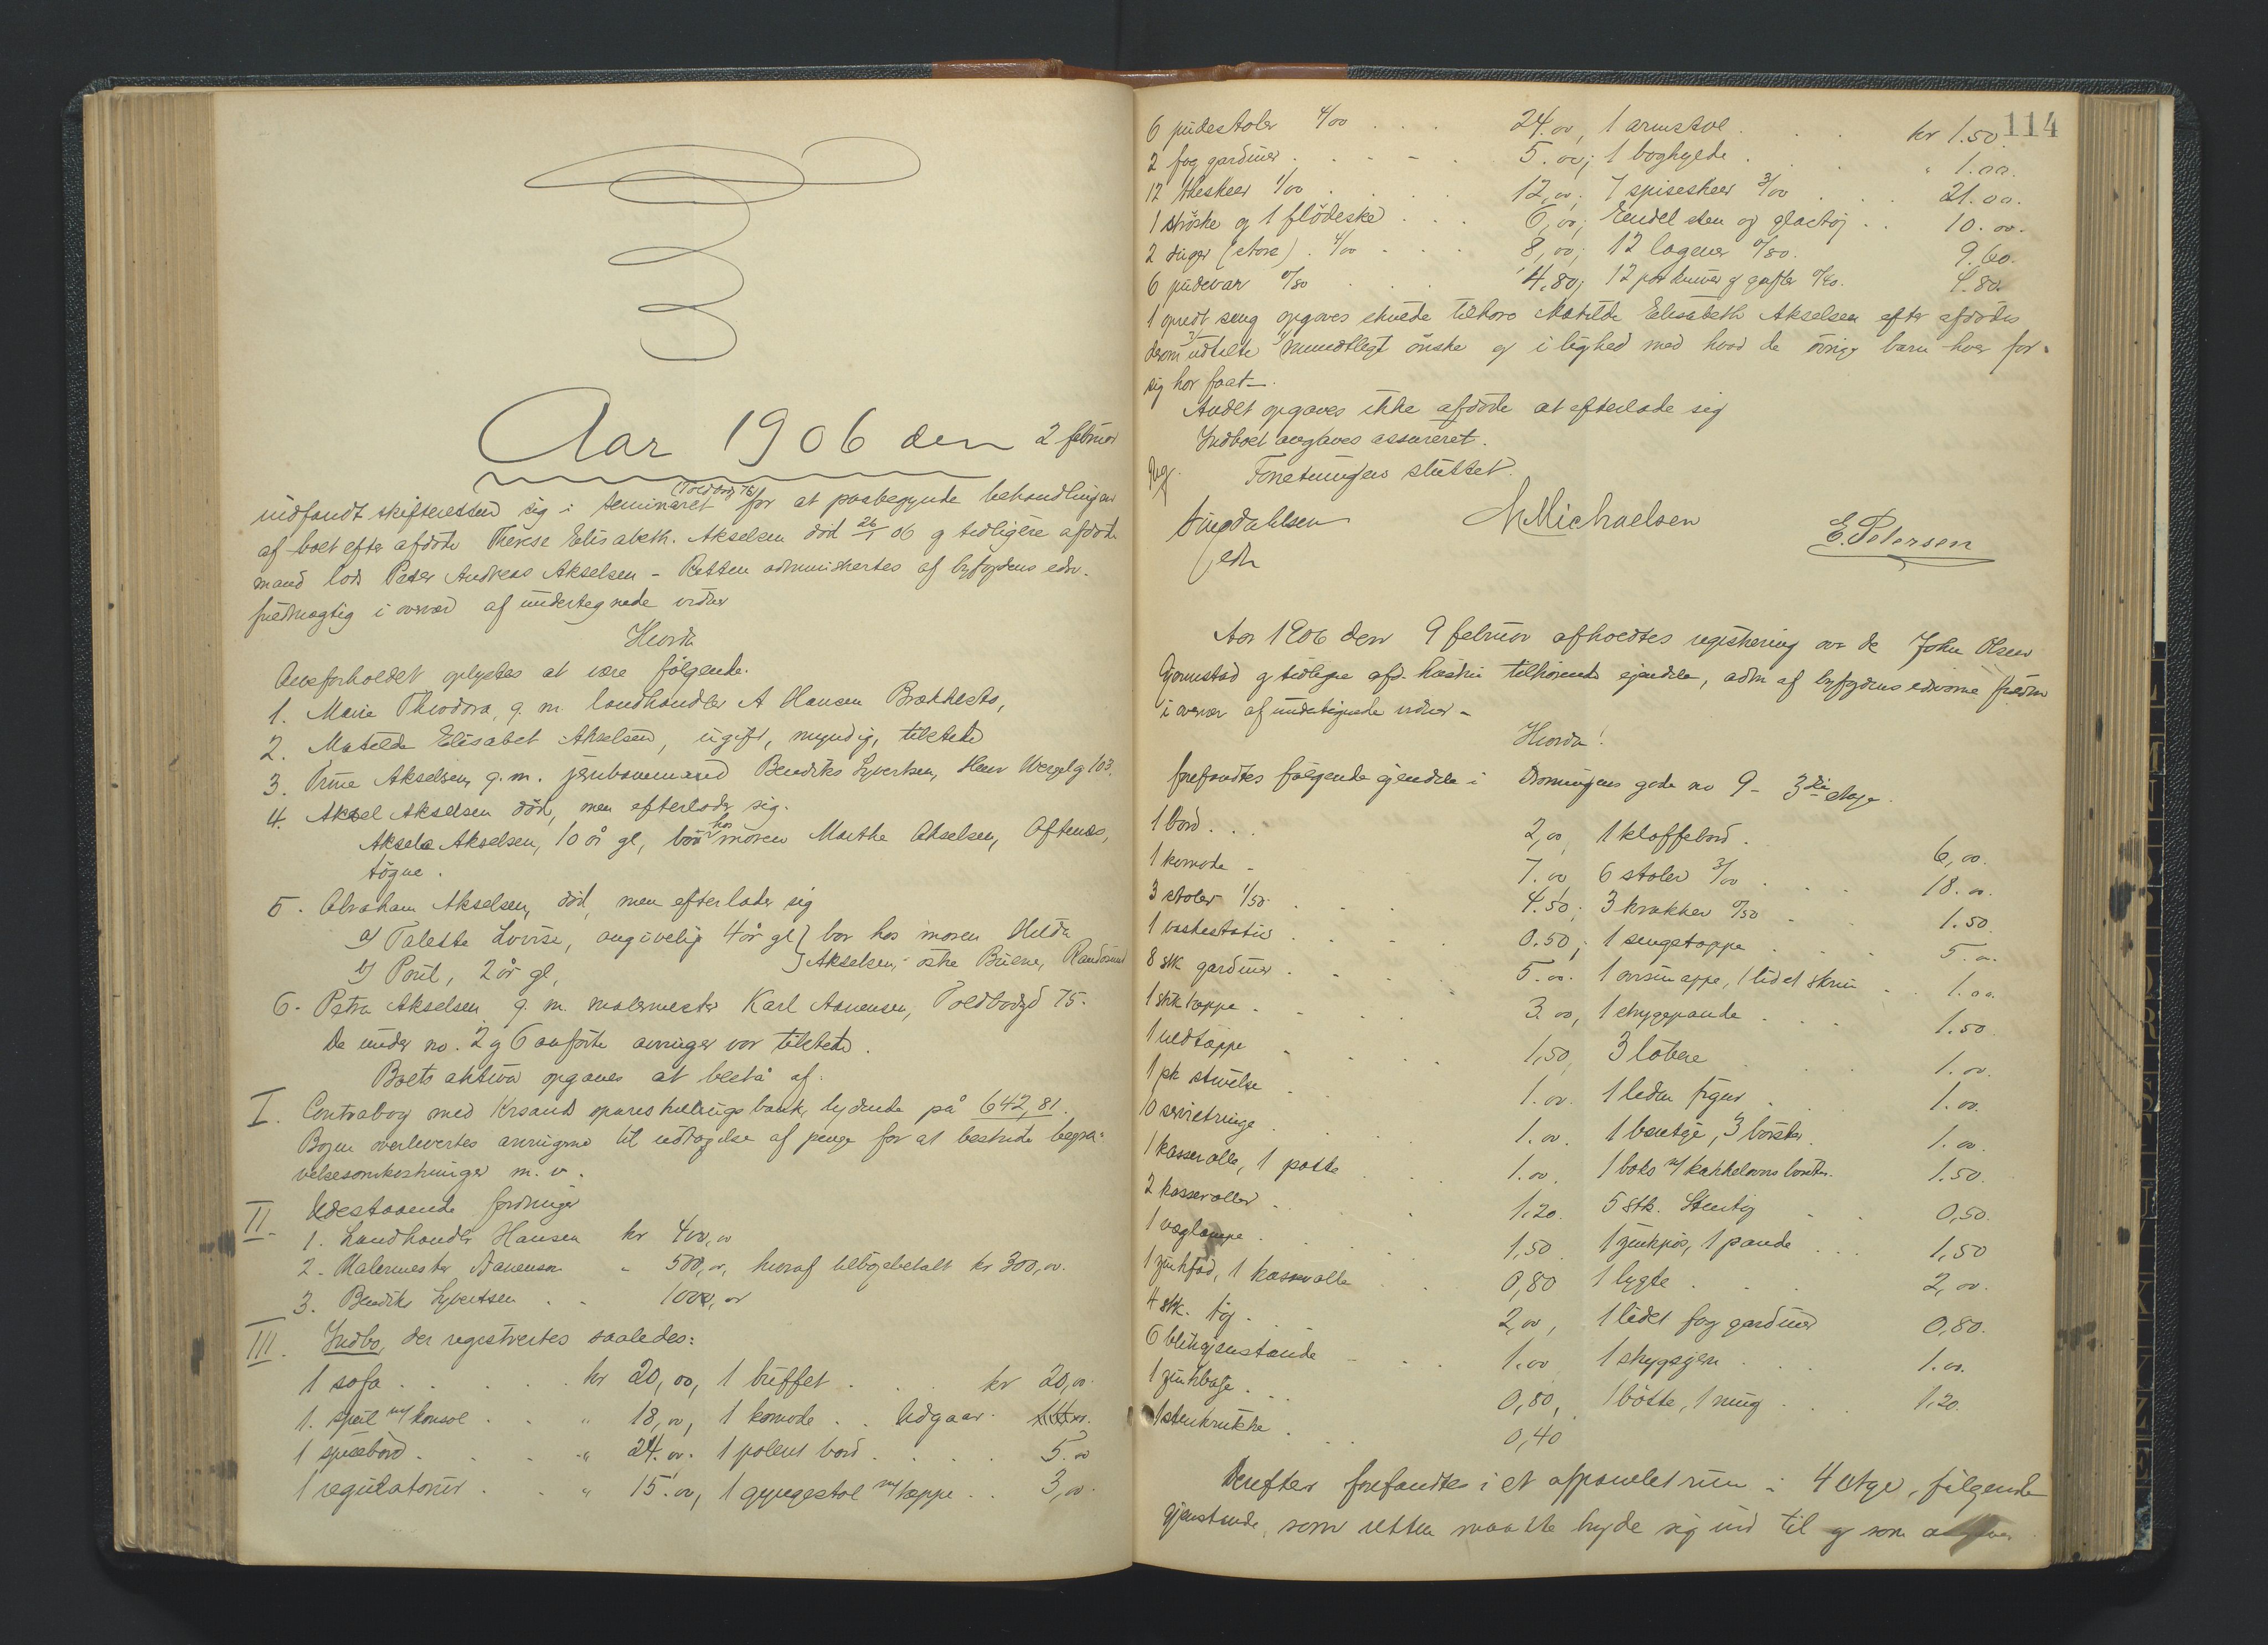 Aar 1906 den 2 februar
indfandt skifteretten sig i Seminaret (Toldbodg 75) for at paabegynde behandlingen
af boet efter afdøde Therese Elisabeth. Akselsen død 26/1 06 og tidligere afdøde
mand lods Peder Andreas Akselsen - Retten administrertes af byfogdens edsv.
fuldmægtig i overvær af undertegnede vidner
Hvorda
Arveforholdet oplystes at være følgende.
1. Marie Theodora, g. m. landhandler A Hansen Brekkestø,
2. Matilde Elisabet Akselsen, ugift, myndig, tilstede
3. Trine Akselsen, g. m. jernbanemand Bendiks Syvertsen, Henr Wergelg 103.
4. Aksel Akselsen død, men efterlader sig.
Aksel Akselsen, 10 år gl, bor hos moren Marthe Akselsen, Oftenes,
Søgne.
5. Abraham Akselsen, død, men efterlader sig
a/ Talette Lovise, angivelig 4 år gl } bor hos moren Hilda
b/ Poul, 2 år gl, } Akselsen, østre Buene, Randøsund
6. Petra Akselsen g. m. malermester Karl Aanensen, Toldbodgd 75.
De under no. 2 og 6 anførte arvinger var tilstede.
Boets aktiva opgaves at bestå af.
I. Contrabog med Krsands spareskillingsbank, lydende på 642,81.
Bogen overlevertes arvingerne til udtagelse af penge for at bestride begra-
velsesomkostninger m. v.
II. Udestaaende fordringer
1. Landhandler Hansen kr 400,00
2. Malermester Aanensen " 500,00, hvoraf tilbagebetalt kr 300,00.
3. Bendiks Syvertsen . . 1000,00
III. Indbo, der registrertes saaledes:
1 sofa . . . kr 20,00, 1 buffet . . kr 20,00.
1. speil m/ konsol . . " 18,00, 1 komode . . Udgaar.
1 spisebord . . . " 24.00. 1 polert bord . . . 5.00
1 regulatorur . . " 15.00, 1 gyngestol m/ tæppe . . 3,00.
114
6 pudestoler 4/00 . . . 24.00, 1 armstol . . . kr 1.50.
2 fag gardiner . . . . 5.00; 1 boghylde . . . " 1.00.
12 theskeer 1/00 . . . 12,00; 7 spiseskeer 3/00 . . . 21.00.
1 strøske og 1 flødeske . . . 6,00; Endel sten og glastøj . . 10.00.
2 duger (store) . 4/00 . . . 8,00; 12 lagener 0/80. 9.60.
6 pudevar 0/80 . . . 4.80; 12 par kniver og gafler 0/40. 4.80.
1 opredt seng opgaves skulde tilhøre Matilde Elisabeth Akselsen efter afdødes
derom udtalte mundtligt ønske og i lighed med hvad de øvrige barn hver for-
sig har faat.
Andet opgaves ikke afdøde at efterlade sig
Indboet angaves assureret.
Forretningen sluttet.
M Michaelsen
E. Petersen
edsv
Aar 1906 den 9 februar afholdtes registrering over de John Olsen
Gjermestad og tidligere afd. hustru tilhørende eiendele, adm af byfogdens edsvorne fuldm
i overvær af undertegnede vidner -
Hvorda!
forefandtes følgende eiendele i Dronningens gade no 9 - 3die etage.
1 bord . . . 2,00 1 klaffebord . 6,00.
1 komode - 7.00 6 stoler 3/00 . . . 18.00.
3 stoler 1/50 . . . 4.50; 3 krakker 0/50 - 1.50.
1 vaskestativ . . . . 0.50; 1 sengetæppe . . . 5.00.
8 stk gardiner . . . 5.00. 1 , 1 lidet skrin . . 1.00.
1 stk tæppe . . . 3.00, 1 strygepande . . . 1.50
1 uldtæppe . . . . 1,50, 3 løbere . . 1.00.
1 pk stivelse . . . 1.00. 1 liden figur . . 1.00.
10 servietringe . . . 1.00. 1 , 3 børster. 1.00.
1 kasserolle, 1 potte . . . 1.00. 1 boks m/ kakkelovns børster. 1.50.
2 kasseroller . . . 1.20. 5 stk. Stentøj . . 0,50.
1 væglampe . . . 1,50. 1 zinkpøs, 1 pande . . . 1,50
1 zinkfad, 1 kasserolle . . 0,80 1 lygte . . . 2,00.
4 stk. tøj . . . 2,00, 1 lidet fag gardiner 0,80.
6 blikgjenstande - . . 1.00 1 strygejern . . . 1.00.
1 zinkbalje . . . 0,80, 1 bøtte, 1 . . 1,20.
1 stenkrukke . . . 0,40
Derefter forefandtes i et afpanelet rum i 4 etage, følgende
gjenstande, som retten maatte bryde sig ind til og som